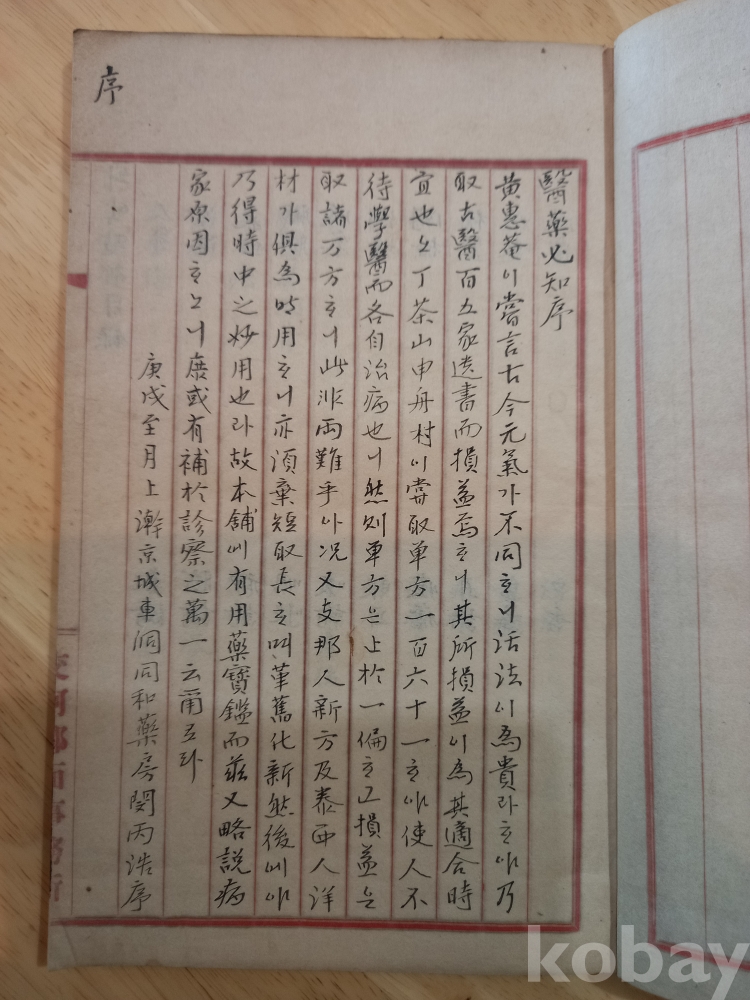 序
醫藥必知序
黃惠菴이嘗言古今元氣가不同ᄒᆞ니活法이爲貴라ᄒᆞ야乃
取古醫百五家遺書而損益焉ᄒᆞ니其所損益이爲其適合時
宜也오丁茶山申舟村이嘗取單方一百六十一ᄒᆞ야使人不
待學醫而各自治病也니然則單方은上於一偏ᄒᆞ고損益은
取諸万方ᄒᆞ니此非兩難乎아况又支那人新方及泰西人洋
材가俱爲時用ᄒᆞ니亦須棄短取長ᄒᆞ며革舊化新然後에야
乃得時中之妙用也라故本舖에有用藥寶鑑而玆又略說病
家原因ᄒᆞ오니庶或有補於診察之萬一云爾로라
庚戌至月上澣京城車洞同和藥房閔丙浩序
交河郡面事務所
kobay